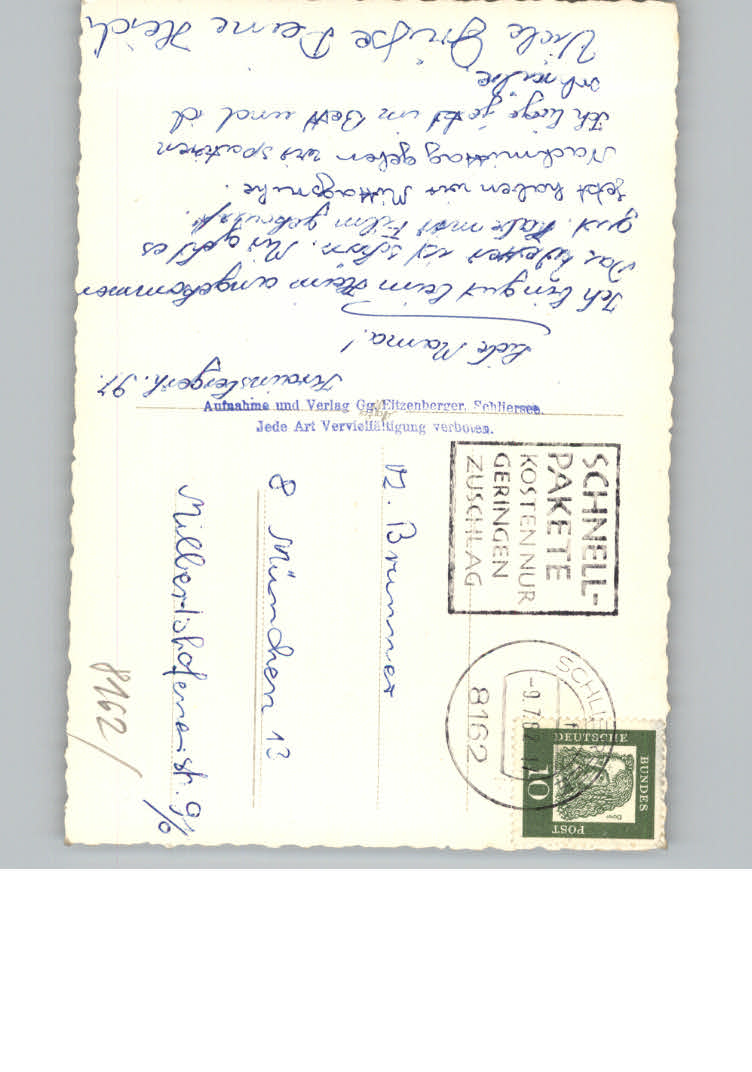 Liebe Mama!
Ich bin gut beim Heim angekommen
Das Wetter ist schön. Mir geht es
gut. Habe mir Film gekauft.
Jetzt haben wir Mittagsruhe.
Nachmittag gehen wir spazieren
Ich liege jetzt im Bett und
schreibe
Viele Grüße Deine
Aufnahme und Verlag Gg. Eitzenberger, Schliersee.
Jede Art Vervielfältigung verboten.
SCHNELL-
PAKETE
KOSTEN NUR
GERINGEN
ZUSCHLAG
8162
DEUTSCHE
BUNDES
POST
10
Dürer
M. Brunner
8 München 13
Milbertshofenerstr. 91/0
8162/